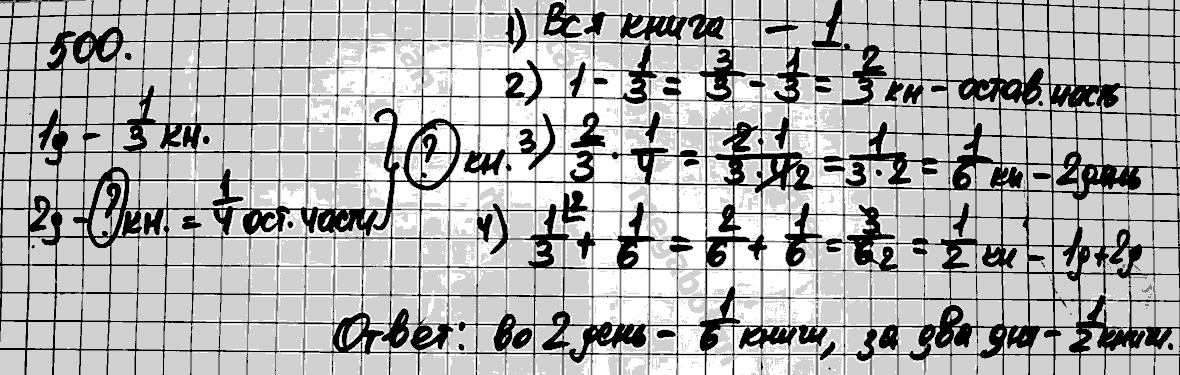 500.
1д - 1/3 кн.
2д - ? кн. = 1/4 ост. части
} ? кн.
1) Вся книга - 1.
2) 1 - 1/3 = 3/3 - 1/3 = 2/3 кн - остав. часть
3) 2/3 · 1/4 = 2·1/3·4 2 = 1/3·2 = 1/6 кн - 2 день
4) 1/3 |2 + 1/6 = 2/6 + 1/6 = 3/6 2 = 1/2 кн - 1д+2д
Ответ: во 2 день - 1/6 книги, за два дня - 1/2 книги.